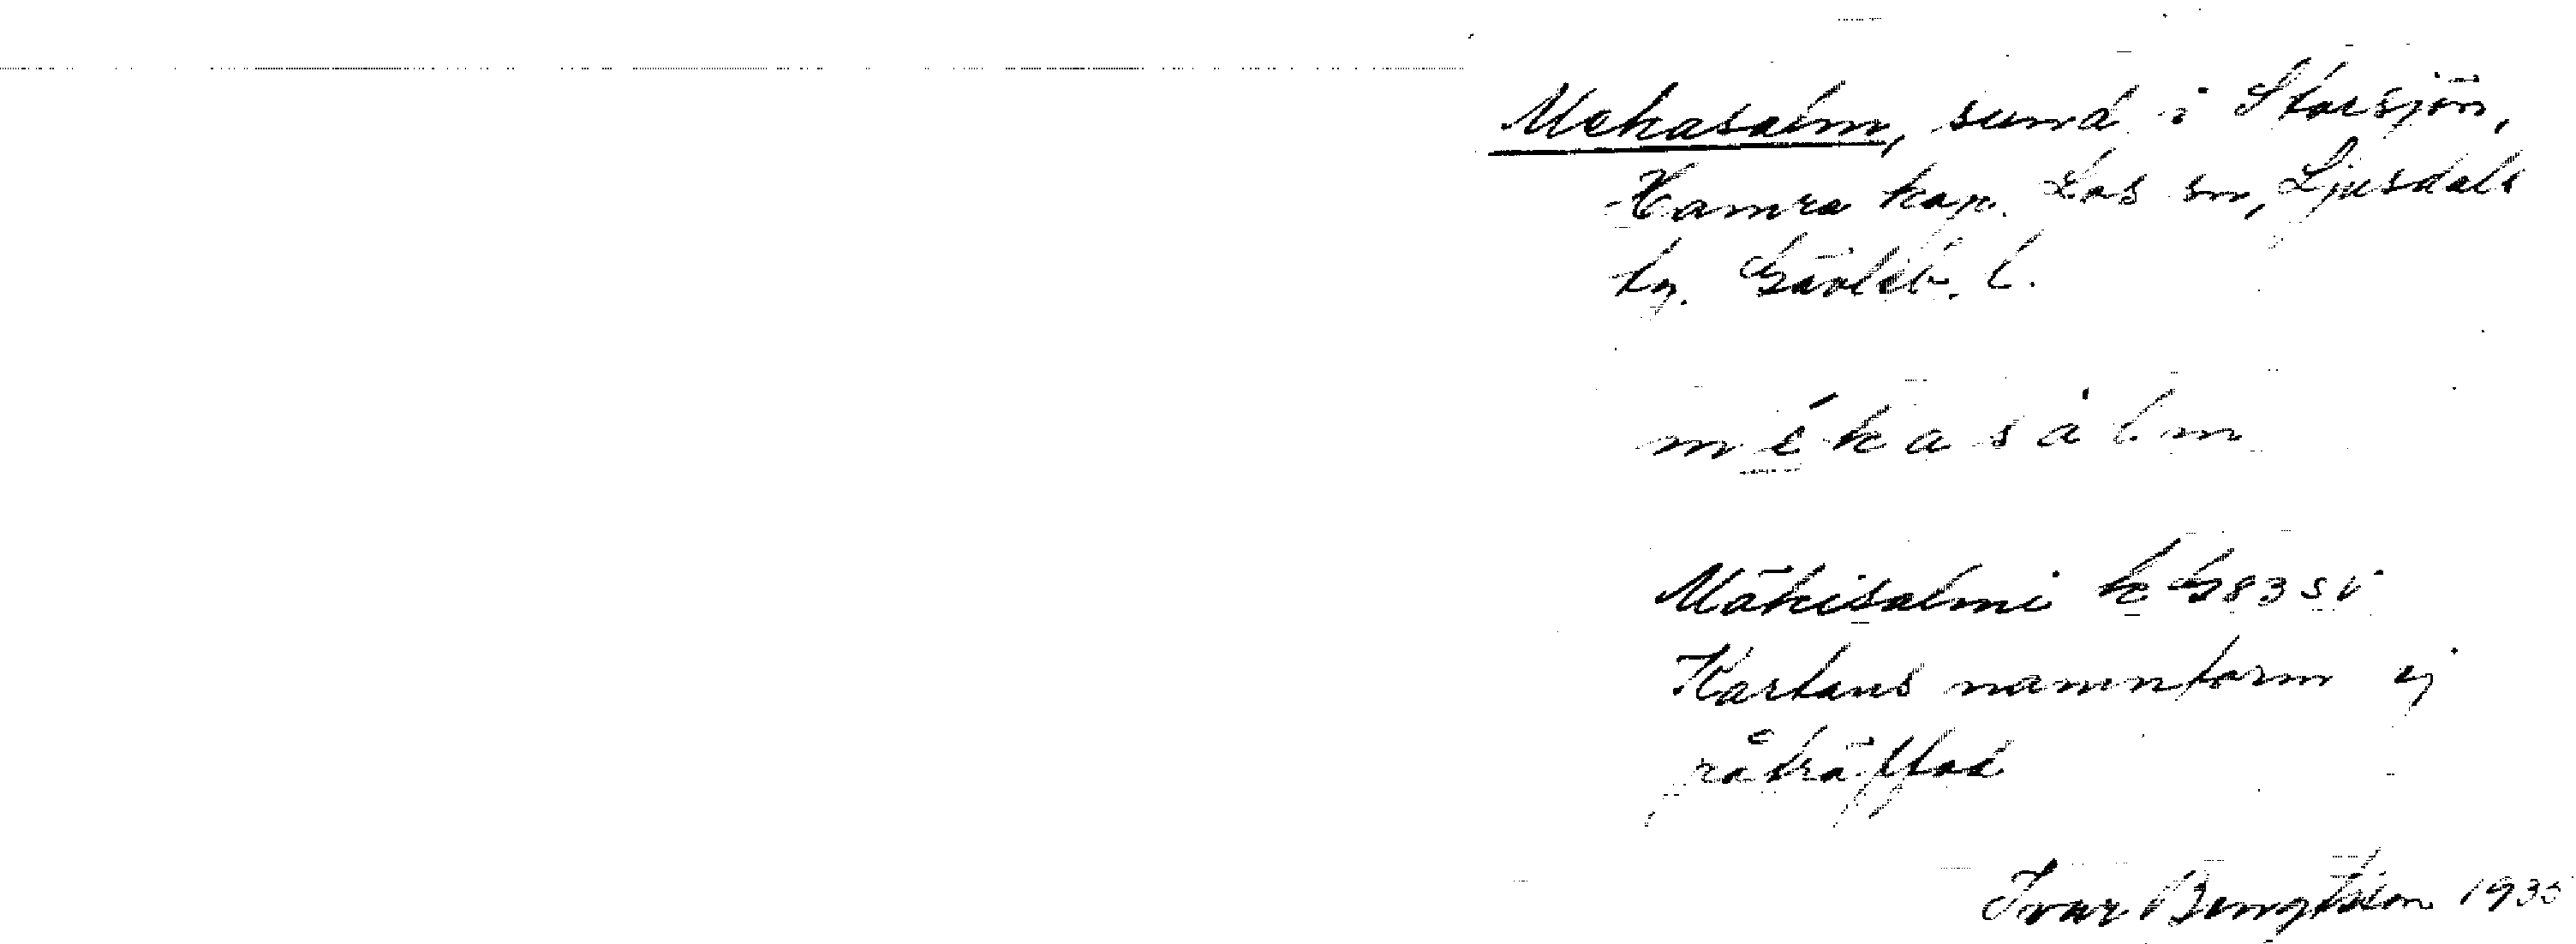 Mekasalm, sund i Storsjön,
Hamra kap. Los sn, Ljusdals
tg. Gävleb. l.
mékasàlm
Mäkisalmi k G83 SV
Kartans namnform ej
påträffad
Ivar Bengtsson 1935